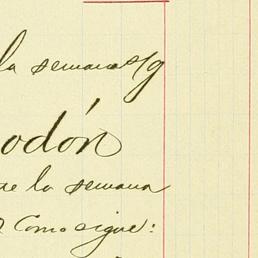 la semana s/g
odón
de la semana
Como sigue: